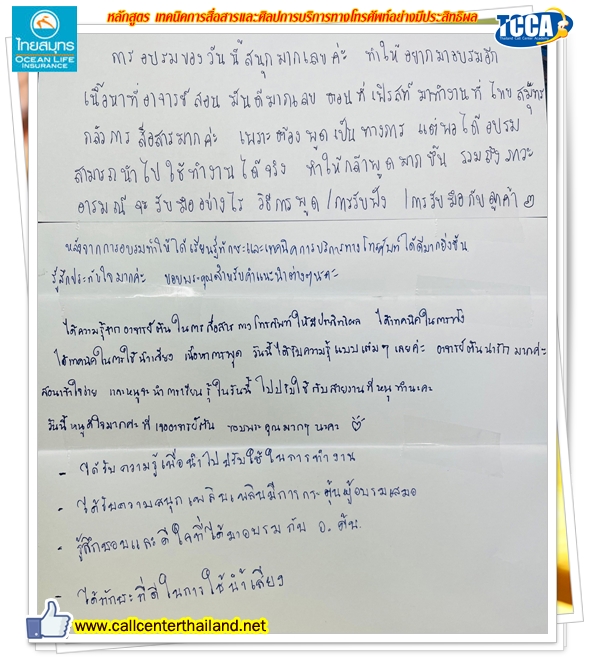 หลักสูตร เทคนิคการสื่อสารและศิลปการบริการทางโทรศัพท์อย่างมีประสิทธิผล
ไทยสมุทร
OCEAN LIFE
INSURANCE
TCCA
Thailand Call Center Academy
การอบรมของวันนี้สนุกมากเลยค่ะ ทำให้อยากมาอบรมอีก
เนื้อหาที่อาจารย์สอน มันดีมากเลย ตอนที่เฟิรสท์มาทำงานที่ ไทยสมุทร
กลัวการ สื่อสารมากค่ะ เพราะต้องพูดเป็นทางการ แต่พอได้อบรม
สามารถนำไปใช้ทำงานได้จริง ทำให้กล้าพูดมากขึ้น รวมถึง ภาวะ
อารมณ์ จะรับมืออย่างไร วิธีการพูด /การรับฟัง /การรับมือกับลูกค้า
หลังจากการอบรมทำให้ได้เรียนรู้ทักษะและเทคนิคการบริการทางโทรศัพท์ได้ดีมากยิ่งขึ้น
รู้สึกประทับใจมากค่ะ ขอบพระคุณสำหรับคำแนะนำต่างๆนะคะ
ได้ความรู้จากอาจารย์ต้นในการสื่อสารทางโทรศัพท์ให้มีประสิทธิผล ได้เทคนิคในการฟัง
ได้เทคนิคในการใช้น้ำเสียง เนื้อหาการพูด วันนี้ได้รับความรู้แบบเต็มๆ เลยค่ะ อาจารย์ต้นน่ารักมากค่ะ
สอนเข้าใจง่าย และหนูจะนำการเรียนรู้ในวันนี้ ไปปรับใช้กับสายงานที่หนูทำนะคะ
วันนี้หนูดีใจมากค่ะที่เจออาจารย์ต้น ขอบพระคุณมากๆ นะคะ
- ได้รับความรู้เพื่อนำไปปรับใช้ในการทำงาน
- ได้รับความสนุกเพลิดเพลินมีการกระตุ้นผู้อบรมเสมอ
- รู้สึกชอบและดีใจที่ได้มาอบรมกับ อ. ต้น.
- ได้ทักษะที่ดีในการใช้น้ำเสียง
www.callcenterthailand.net